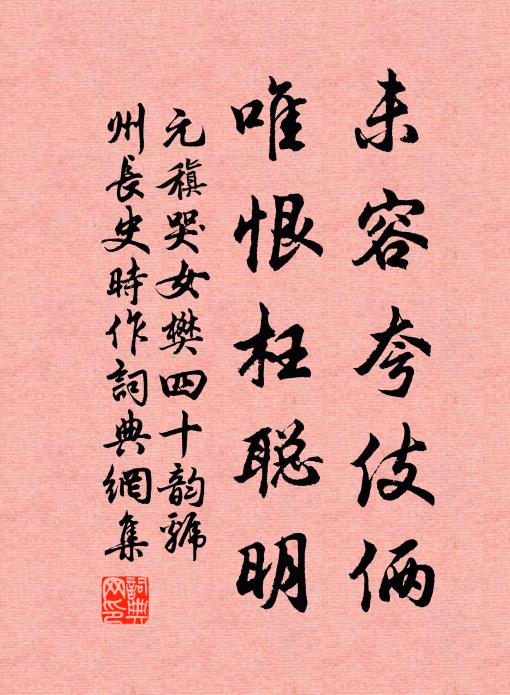 未容夸伎俩
唯恨枉聪明
元稹哭女樊四十韵虢
州长史时作词典網集
詞典網印